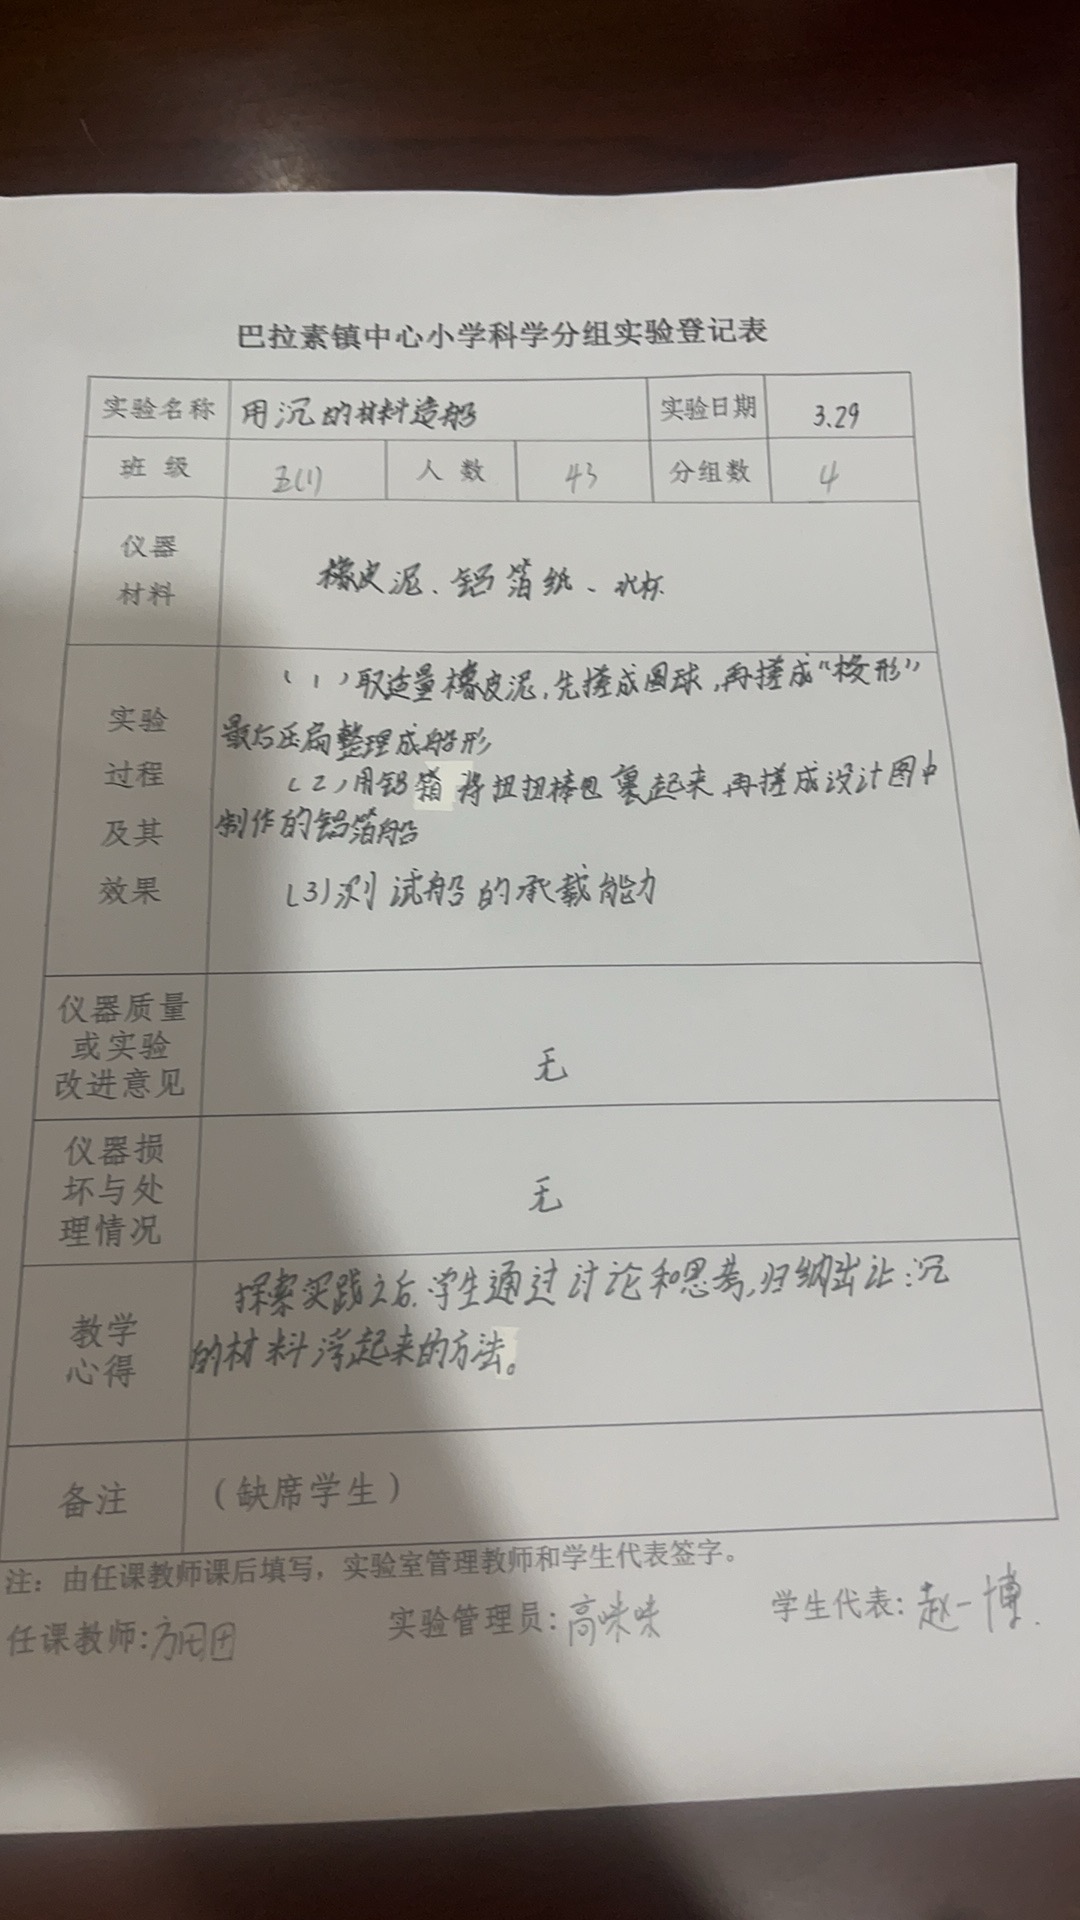 巴拉素镇中心小学科学分组实验登记表
实验名称 用沉的材料造船 实验日期 3.29
班级 五(1) 人数 43 分组数 4
仪器
材料
橡皮泥、铝箔纸、水杯
实验
过程
及其
效果
(1)取适量橡皮泥,先搓成圆球,再搓成“梭形”
最后压扁整理成船形
(2)用铝箔将扭扭棒包裹起来再搓成设计图中
制作的铝箔船
(3)测试船的承载能力
仪器质量
或实验
改进意见
无
仪器损
坏与处
理情况
无
教学
心得
探索实践之后,学生通过讨论和思考,归纳出让沉
的材料浮起来的方法。
备注 (缺席学生)
注:由任课教师课后填写,实验室管理教师和学生代表签字。
任课教师: 实验管理员:高咪咪 学生代表:赵一博.